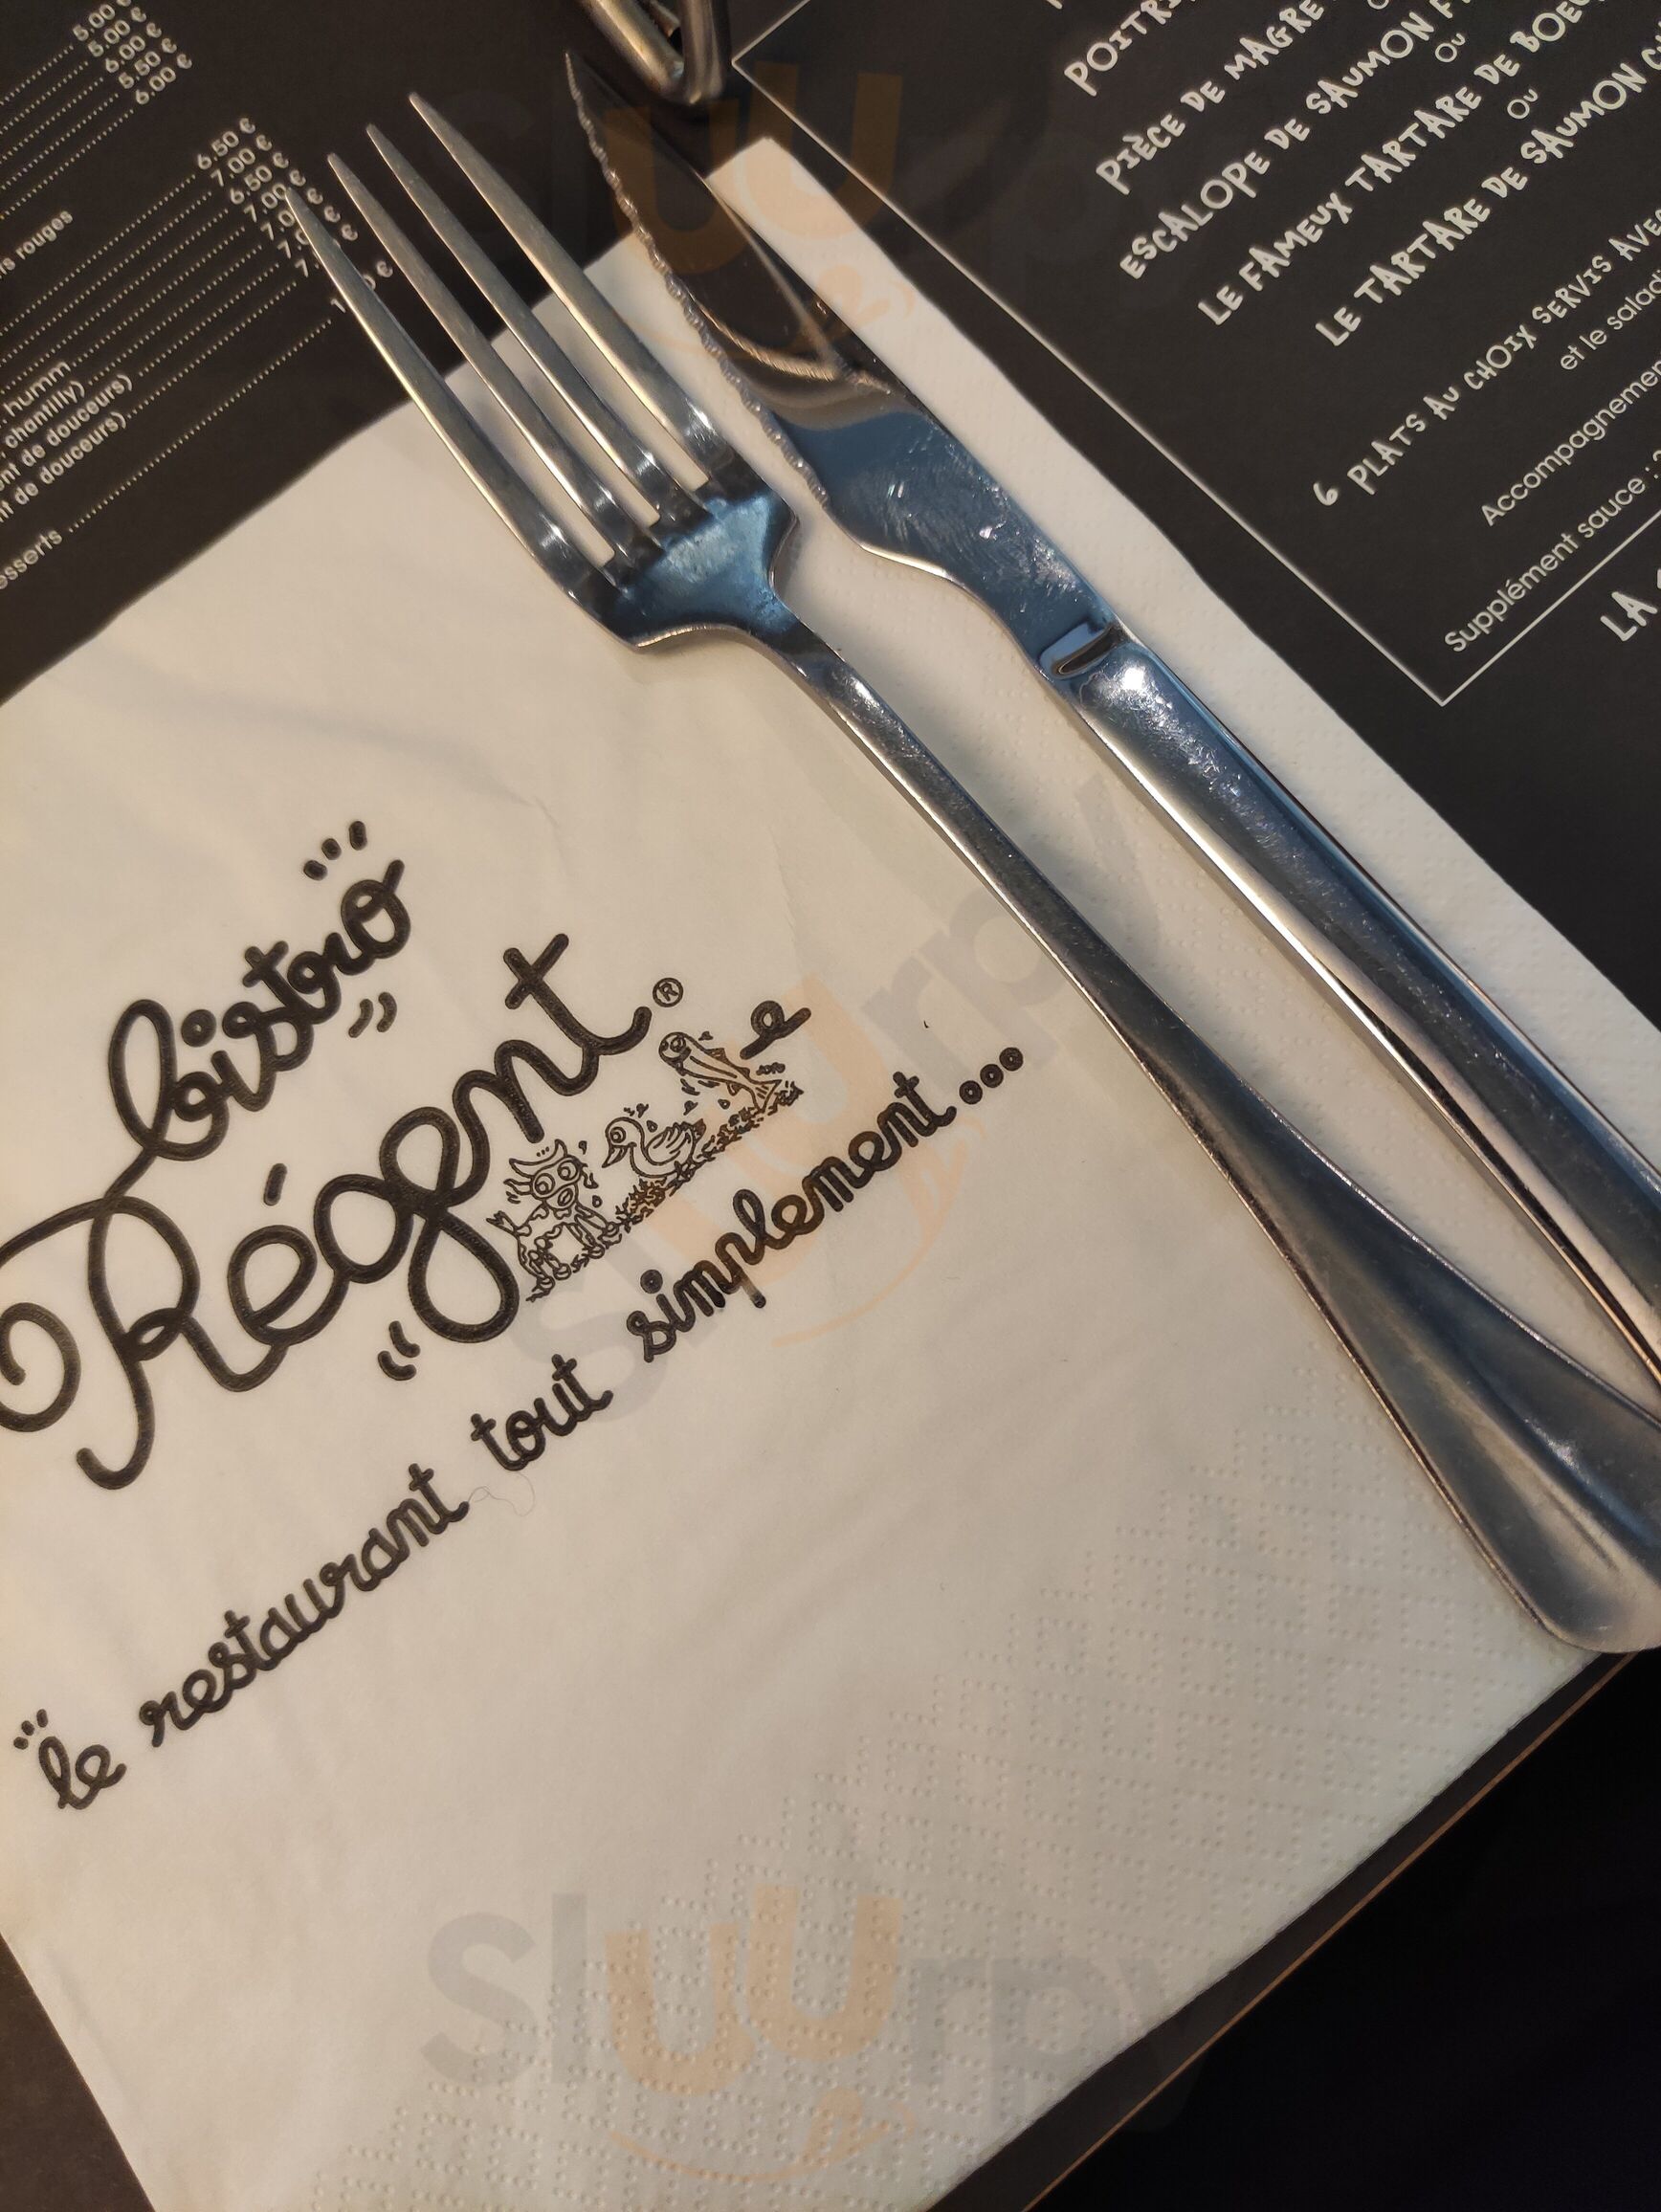 5.00 €
5.00 €
6.00 €
5.50 €
6.00 €
6.50 €
7.00 €
rouges
6.50 €
7.00 €
humm
chantilly)
de douceurs)
de douceurs)
POITRI
PIÈCE DE MAGRE
ESCALOPE DE SAUMON
Ou
LE FAMEUX TARTARE DE BOEU
Ou
LE TARTARE DE SAUMON
6 PLATS AU CHOIX SERVIS AVEC
et le salad
Accompagnement
Supplément sauce :
LA
bistro
Régent®
le restaurant tout simplement...
sluurpy
sluurpy
sluurpy